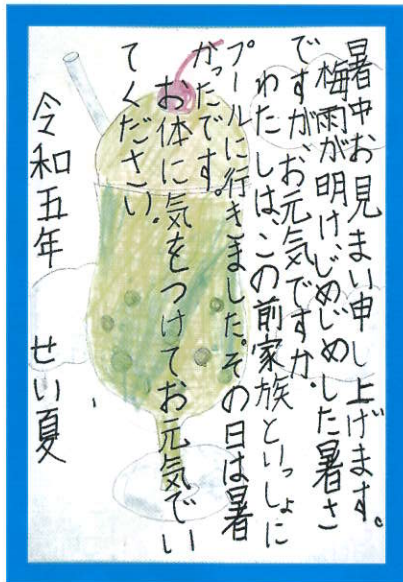 暑中お見まい申し上げます。
梅雨が明け、じめじめした暑さ
ですが、お元気ですか。
わたしは、この前家族といっしょに
プールに行きました。その日は暑
かったです。
お体に気をつけてお元気でい
てください。
令和五年 せい夏